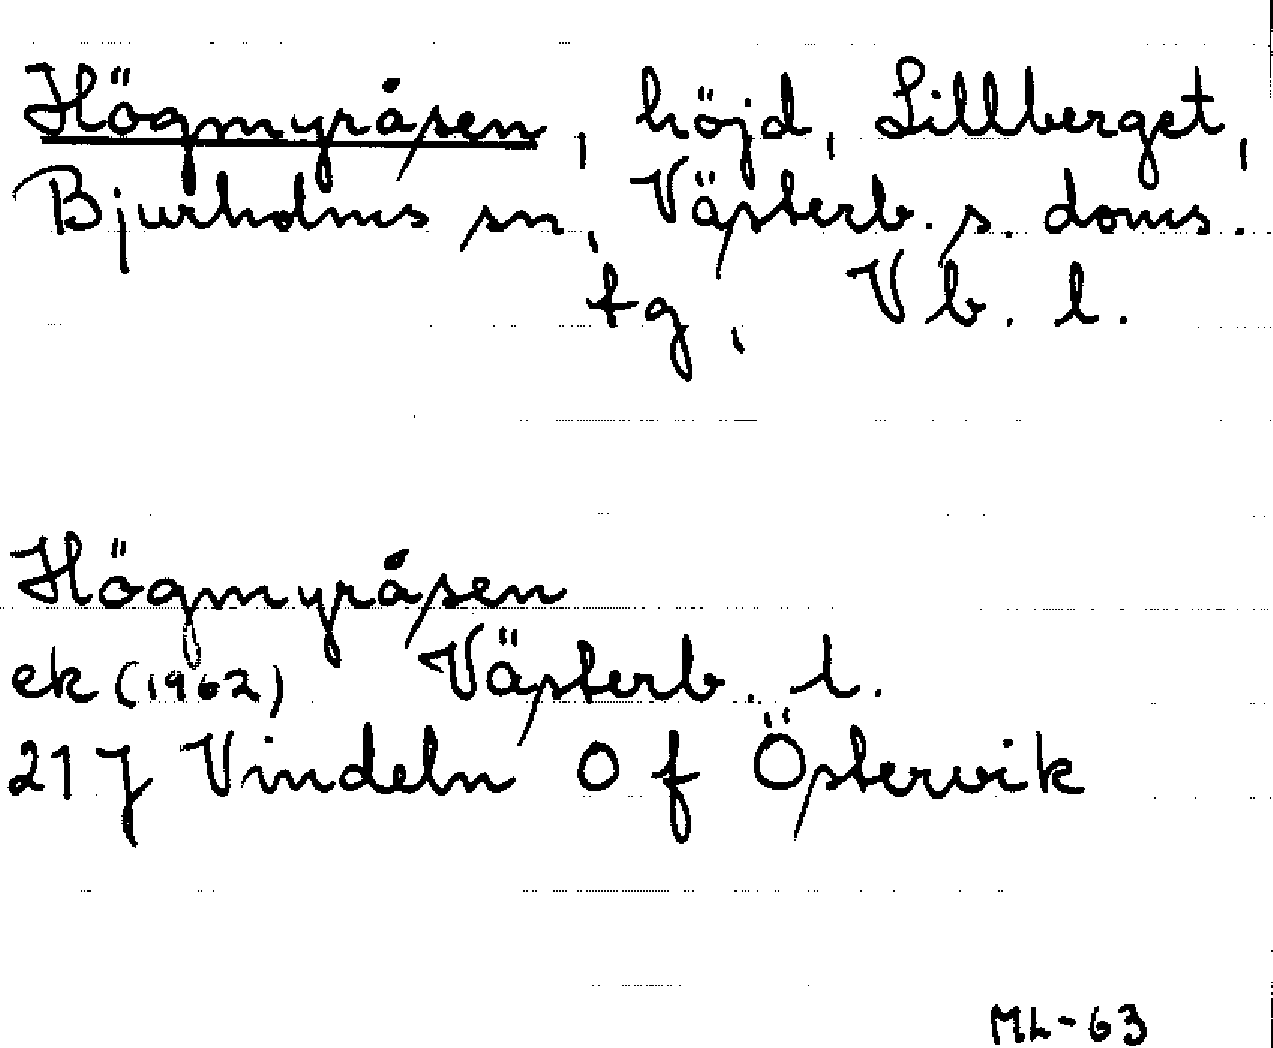 Högmyråsen, höjd, Lillberget,
Bjurholms sn, Västerb. s. doms.
tg, Vb. l.
Högmyråsen
ek (1962) Västerb. l.
21 J Vindeln O f Östervik
ML-63